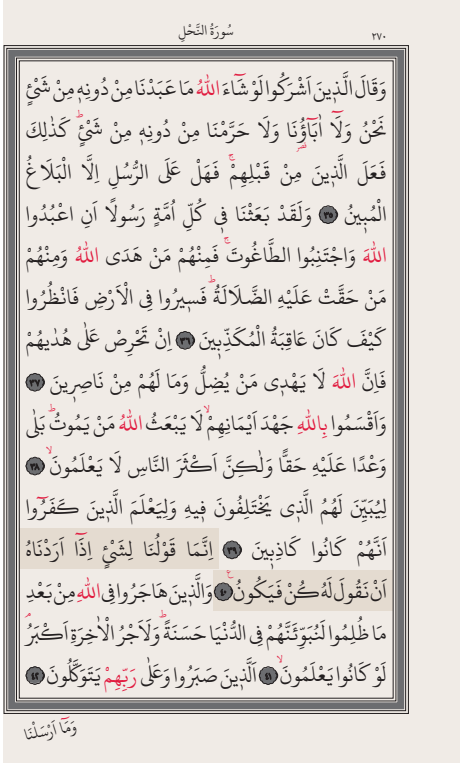 سُورَةُ النَّحْلِ ٢٧٠
وَقَالَ الَّذ۪ينَ اَشْرَكُوا لَوْ شَٓاءَ اللّٰهُ مَا عَبَدْنَا مِنْ دُونِه۪ مِنْ شَيْءٍ
نَحْنُ وَلَٓا اٰبَٓاؤُ۬نَا وَلَا حَرَّمْنَا مِنْ دُونِه۪ مِنْ شَيْءٍۜ كَذٰلِكَ
فَعَلَ الَّذ۪ينَ مِنْ قَبْلِهِمْۚ فَهَلْ عَلَى الرُّسُلِ اِلَّا الْبَلَاغُ
الْمُب۪ينُ ﴿٣٥﴾ وَلَقَدْ بَعَثْنَا ف۪ي كُلِّ اُمَّةٍ رَسُولًا اَنِ اعْبُدُوا
اللّٰهَ وَاجْتَنِبُوا الطَّاغُوتَۚ فَمِنْهُمْ مَنْ هَدَى اللّٰهُ وَمِنْهُمْ
مَنْ حَقَّتْ عَلَيْهِ الضَّلَالَةُۜ فَس۪يرُوا فِي الْاَرْضِ فَانْظُرُوا
كَيْفَ كَانَ عَاقِبَةُ الْمُكَذِّب۪ينَ ﴿٣٦﴾ اِنْ تَحْرِصْ عَلٰى هُدٰيهُمْ
فَاِنَّ اللّٰهَ لَا يَهْد۪ي مَنْ يُضِلُّ وَمَا لَهُمْ مِنْ نَاصِر۪ينَ ﴿٣٧﴾
وَاَقْسَمُوا بِاللّٰهِ جَهْدَ اَيْمَانِهِمْۙ لَا يَبْعَثُ اللّٰهُ مَنْ يَمُوتُۜ بَلٰى
وَعْدًا عَلَيْهِ حَقًّا وَلٰكِنَّ اَكْثَرَ النَّاسِ لَا يَعْلَمُونَۙ ﴿٣٨﴾
لِيُبَيِّنَ لَهُمُ الَّذ۪ي يَخْتَلِفُونَ ف۪يهِ وَلِيَعْلَمَ الَّذ۪ينَ كَفَرُٓوا
اَنَّهُمْ كَانُوا كَاذِب۪ينَ ﴿٣٩﴾ اِنَّمَا قَوْلُنَا لِشَيْءٍ اِذَٓا اَرَدْنَاهُ
اَنْ نَقُولَ لَهُ كُنْ فَيَكُونُ۟ ﴿٤٠﴾ وَالَّذ۪ينَ هَاجَرُوا فِي اللّٰهِ مِنْ بَعْدِ
مَا ظُلِمُوا لَنُبَوِّئَنَّهُمْ فِي الدُّنْيَا حَسَنَةًۜ وَلَاَجْرُ الْاٰخِرَةِ اَكْبَرُۢ
لَوْ كَانُوا يَعْلَمُونَۙ ﴿٤١﴾ اَلَّذ۪ينَ صَبَرُوا وَعَلٰى رَبِّهِمْ يَتَوَكَّلُونَ ﴿٤٢﴾
وَمَٓا اَرْسَلْنَا